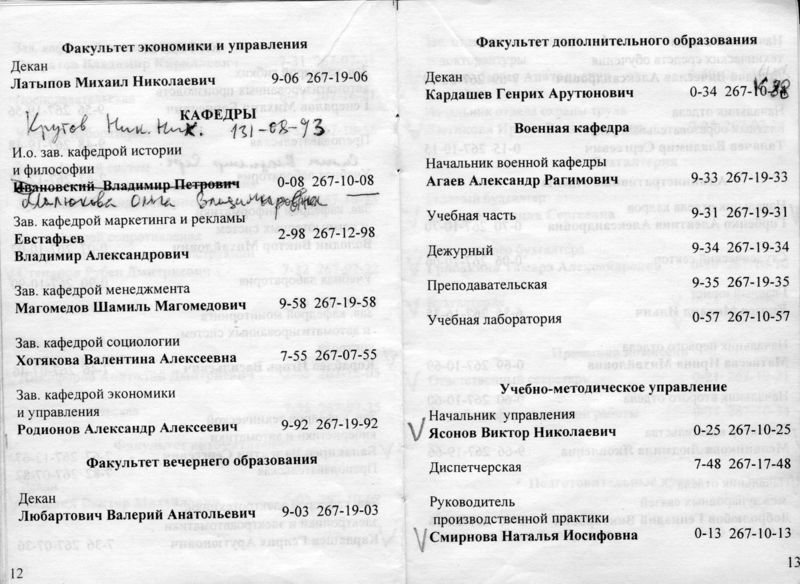 Факультет экономики и управления
Декан
Латыпов Михаил Николаевич 9-06 267-19-06
КАФЕДРЫ
Крутов Ник. Ник. 131-08-93
И.о. зав. кафедрой истории
и философии
Ивановский Владимир Петрович 0-08 267-10-08
Ольга Владимировна
Зав. кафедрой маркетинга и рекламы
Евстафьев 2-98 267-12-98
Владимир Александрович
Зав. кафедрой менеджмента
Магомедов Шамиль Магомедович 9-58 267-19-58
Зав. кафедрой социологии
Хотякова Валентина Алексеевна 7-55 267-07-55
Зав. кафедрой экономики
и управления
Родионов Александр Алексеевич 9-92 267-19-92
Факультет вечернего образования
Декан
Любартович Валерий Анатольевич 9-03 267-19-03
12
Факультет дополнительного образования
Декан
Кардашев Генрих Арутюнович 0-34 267-10-
Военная кафедра
Начальник военной кафедры
Агаев Александр Рагимович 9-33 267-19-33
Учебная часть 9-31 267-19-31
Дежурный 9-34 267-19-34
Преподавательская 9-35 267-19-35
Учебная лаборатория 0-57 267-10-57
Учебно-методическое управление
Начальник управления
Ясонов Виктор Николаевич 0-25 267-10-25
Диспетчерская 7-48 267-17-48
Руководитель
производственной практики
Смирнова Наталья Иосифовна 0-13 267-10-13
13